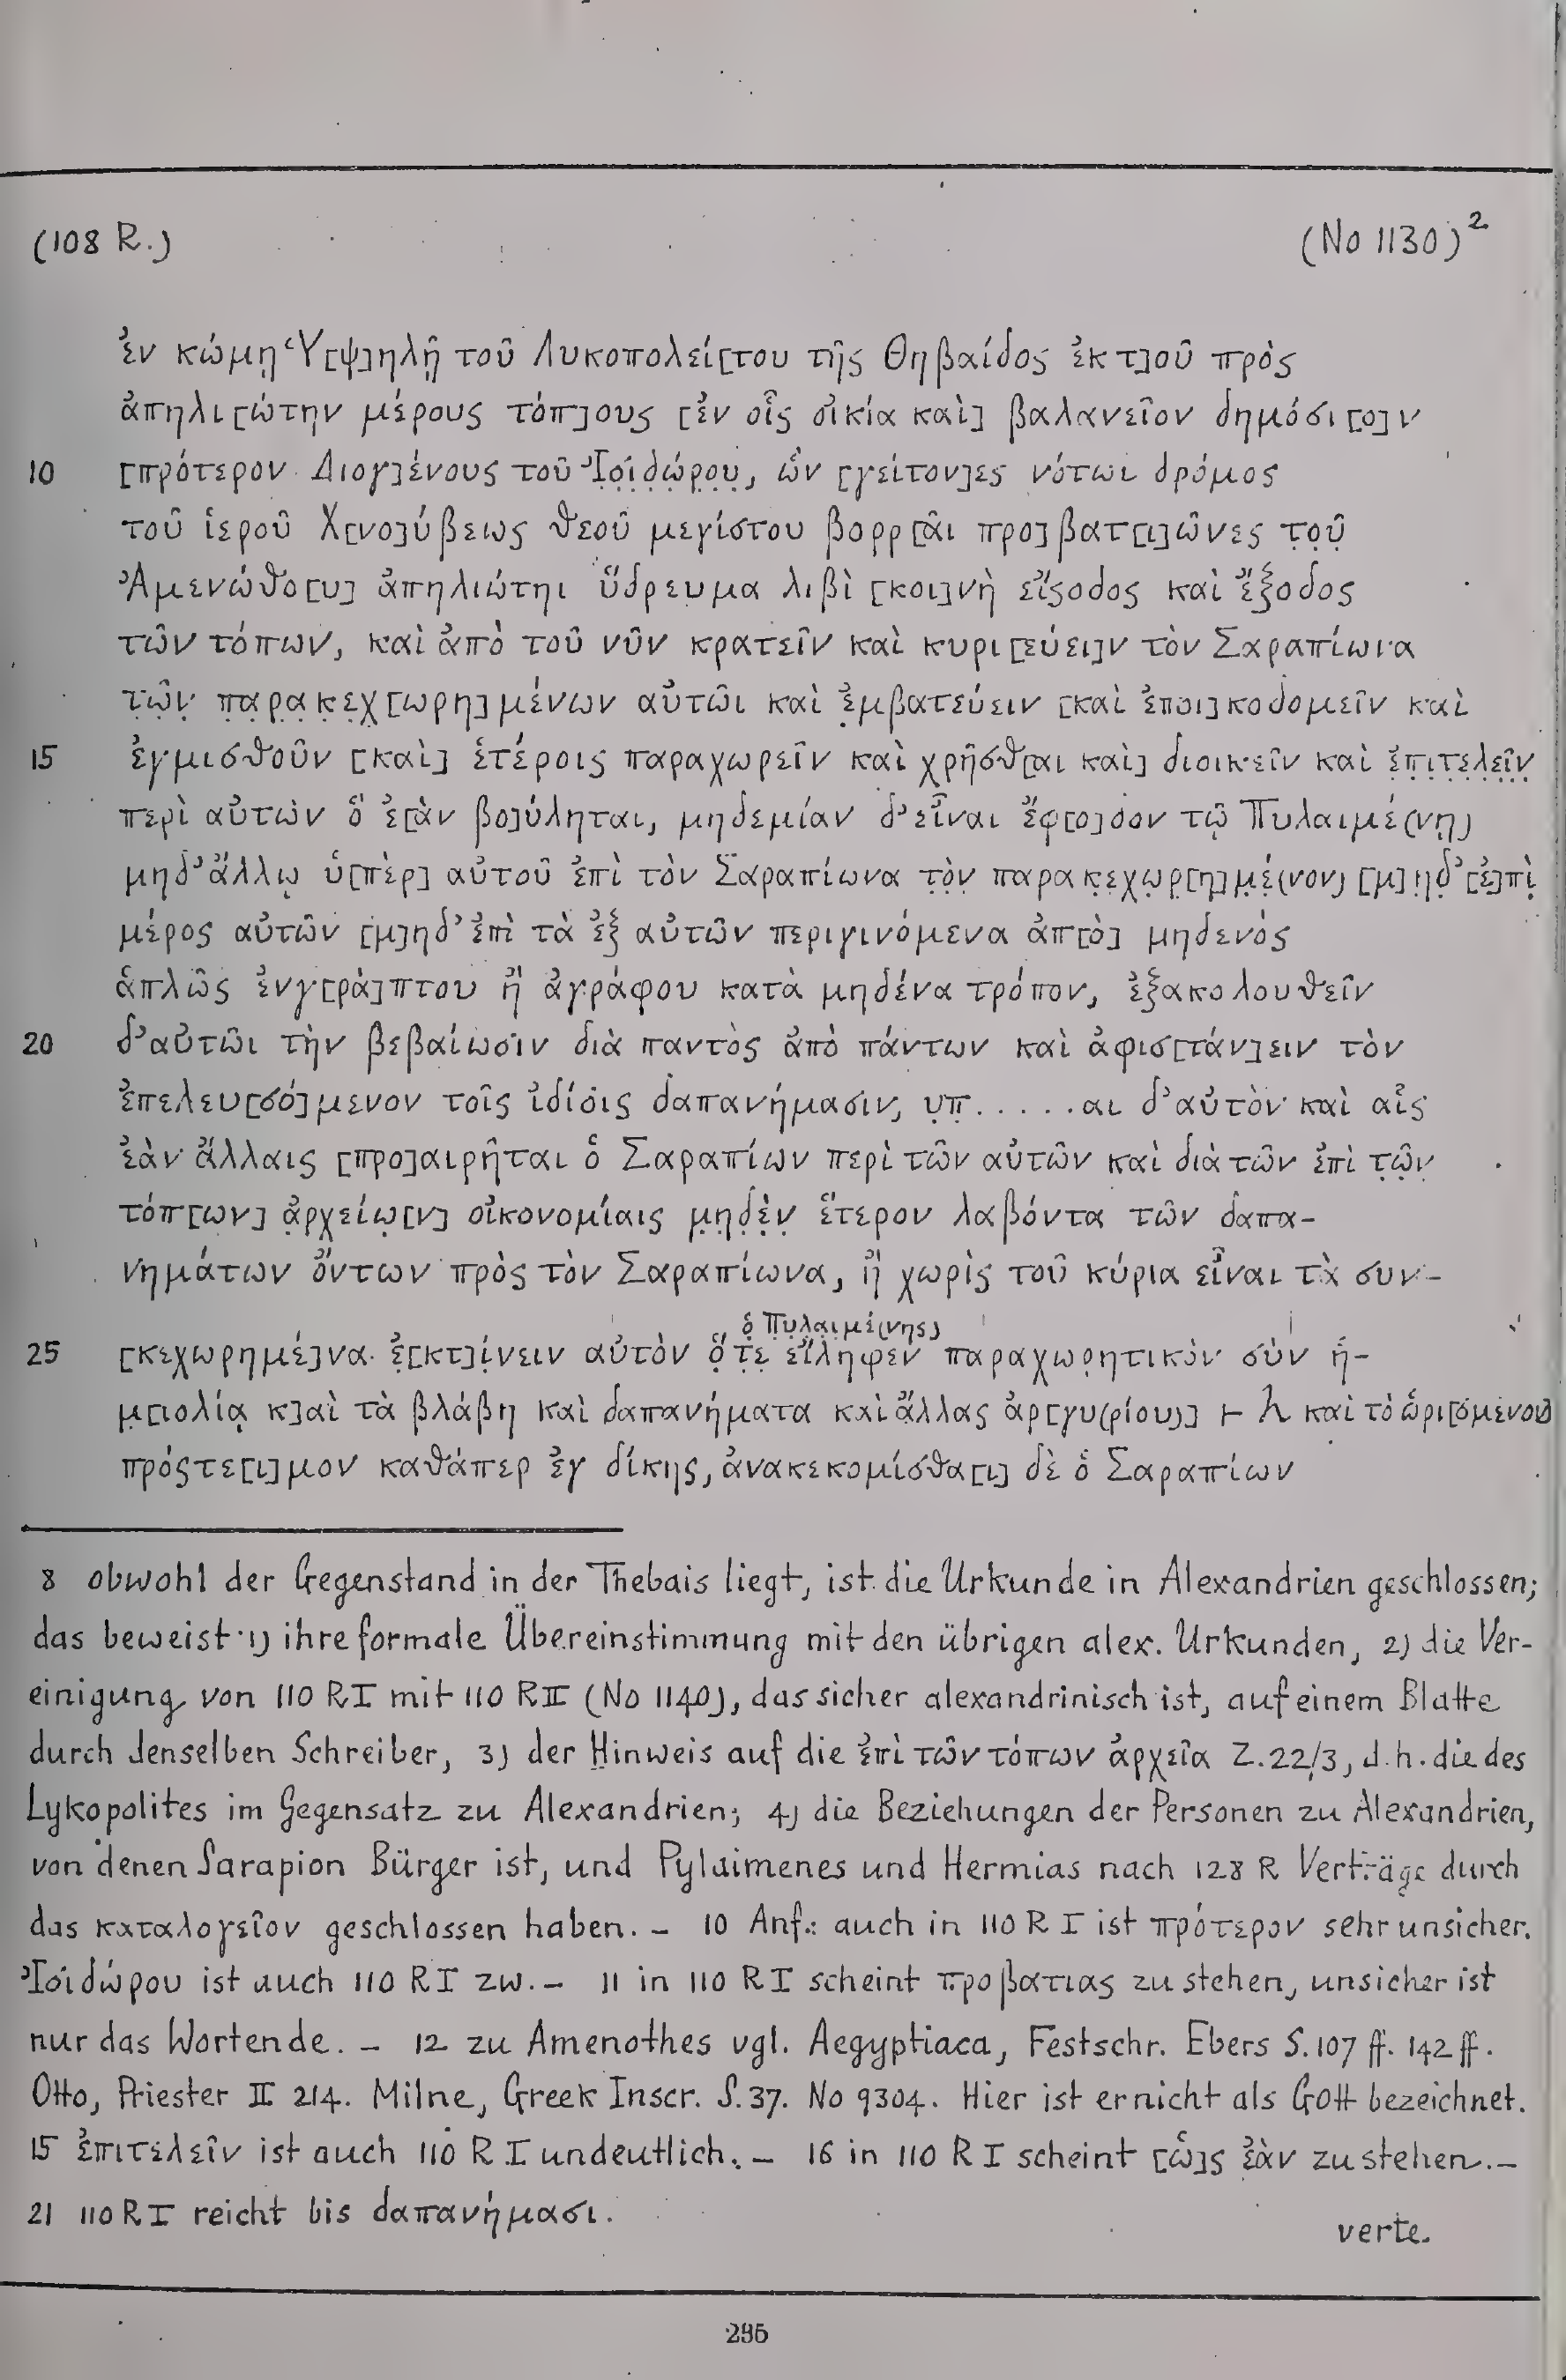 (108 R.) (No 1130)²
ἐν κώμῃ Ὑ[ψ]ηλῇ τοῦ Λυκοπολεί[του τῆς Θηβαίδος ἐκ τ]οῦ πρὸς
ἀπηλι[ώτην μέρους τόπ]ους [ἐν οἷς οἰκία καὶ] βαλανεῖον δημόσι[ο]ν
10 [πρότερον Διογ]ένους τοῦ Ἰ̣σ̣ι̣δ̣ώ̣ρ̣ο̣υ̣, ὧν [γείτον]ες νότωι δρόμος
τοῦ ἱεροῦ Χ[νο]ύβεως θεοῦ μεγίστου βορρ[ᾶι προ]βατ[ι]ῶνες τ̣ο̣ῦ̣
Ἀμενώθο[υ] ἀπηλιώτηι ὕδρευμα λιβὶ [κοι]νὴ εἴςοδος καὶ ἔξοδος
τῶν τόπων, καὶ ἀπὸ τοῦ νῦν κρατεῖν καὶ κυρι[εύει]ν τὸν Σαραπίωνα
τ̣ῶ̣ν̣ π̣α̣ρ̣α̣κ̣ε̣χ̣[ωρη]μένων αὐτῶι καὶ ἐ̣μβατεύειν [καὶ ἐποι]κοδομεῖν καὶ
15 ἐγμισθοῦν [καὶ] ἑτέροις παραχωρεῖν καὶ χρῆσθ[αι καὶ] διοικεῖν καὶ ἐ̣π̣ι̣τ̣ε̣λ̣ε̣ῖ̣ν̣
περὶ αὐτῶν ὃ ἐ[ὰν βο]ύληται, μηδεμίαν δ’εἶναι ἔφ[ο]δον τῷ Πυλαιμέ(νῃ)
μηδ’ἄλλῳ ὑ[πὲρ] αὐτοῦ ἐπὶ τὸν Σαραπίωνα τ̣ὸ̣ν̣ παρακ̣ε̣χ̣ω̣ρ̣[η]μ̣έ̣(νον) [μ]η̣δ̣’[ἐ]πὶ̣
μέρος αὐτῶν [μ]ηδ’ἐπὶ τὰ ἐξ αὐτῶν περιγινόμενα ἀπ[ὸ] μηδενὸς
ἁπλῶς ἐνγ[ρά]πτου ἢ ἀγράφου κατὰ μηδένα τρόπον, ἐξακολουθεῖν
20 δ’αὐτῶι τὴν βεβαίωσιν διὰ παντὸς ἀπὸ πάντων καὶ ἀφισ[τάν]ειν τὸν
ἐπελευ[σό]μενον τοῖς ἰδίοις δαπανήμασιν, υ̣π̣.....αι δ’αὐτὸν καὶ αἷς
ἐὰν ἄλλαις [προ]αιρῆται ὁ Σαραπίων περὶ τῶν αὐτῶν καὶ διὰ τῶν ἐπὶ τ̣ῶ̣ν̣
τόπ[ων] ἀ̣ρχείω̣[ν] οἰκονομίαις μ̣η̣δ̣ὲ̣ν̣ ἕτερον λαβόντα τῶν δαπα-
νημάτων ὄντων πρὸς τὸν Σαραπίωνα, ἢ χωρὶς τοῦ κύρια εἶναι τὰ συν-
ὁ̣ Π̣υ̣λ̣α̣ι̣μέ̣(νης)
25 [κεχωρημέ]να ἐ̣[κτ]ί̣νειν αὐτὸν ὅ̣τ̣ε̣ εἴληφεν παραχωρητικὸν σὺν ἡ-
μ̣[ιολίᾳ κ]αὶ τὰ βλάβη καὶ δαπανήματα καὶ ἄλλας ἀρ[γυ(ρίου)] ⊢ λ καὶ τὸ ὡρι[σμένον]
πρόςτε[ι]μον καθάπερ ἐγ δίκης, ἀνακεκομίσθα[ι] δὲ ὁ Σαραπίων
8 obwohl der Gegenstand in der Thebais liegt, ist die Urkunde in Alexandrien geschlossen;
das beweist 1) ihre formale Übereinstimmung mit den übrigen alex. Urkunden, 2) die Ver-
einigung von 110 R I mit 110 R II (No 1140), das sicher alexandrinisch ist, auf einem Blatte
durch denselben Schreiber, 3) der Hinweis auf die ἐπὶ τῶν τόπων ἀρχεῖα Z. 22/3, d.h. die des
Lykopolites im Gegensatz zu Alexandrien; 4) die Beziehungen der Personen zu Alexandrien,
von denen Sarapion Bürger ist, und Pylaimenes und Hermias nach 128 R Verträge durch
das καταλογεῖον geschlossen haben. – 10 Anf.: auch in 110 R I ist πρότερον sehr unsicher.
Ἰσιδώρου ist auch 110 R I zw. – 11 in 110 R I scheint προβατιας zu stehen, unsicher ist
nur das Wortende. – 12 zu Amenothes vgl. Aegyptiaca, Festschr. Ebers S. 107 ff. 142 ff.
Otto, Priester II 214. Milne, Greek Inscr. S. 37. No 9304. Hier ist er nicht als Gott bezeichnet.
15 ἐπιτελεῖν ist auch 110 R I undeutlich. – 16 in 110 R I scheint [ὡ]ς ἐὰν zu stehen. –
21 110 R I reicht bis δαπανήμασι.
verte.
295